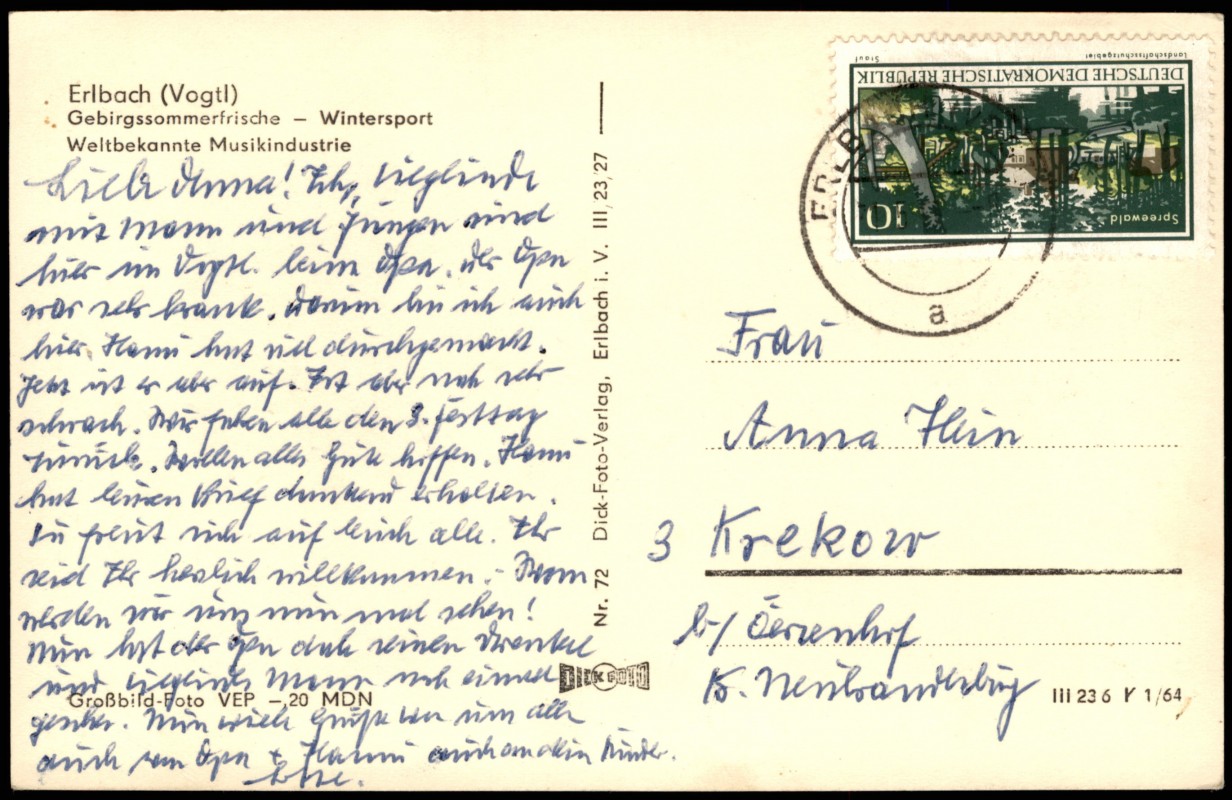 Erlbach (Vogtl)
Gebirgssommerfrische – Wintersport
Weltbekannte Musikindustrie
Liebe Anna! Ich, Sieglinde
mit Mann und Jungen sind
hier im Vogtl. beim Opa. Der Opa
war sehr krank. Darum bin ich auch
hier. Hanni hat viel durchgemacht.
Jetzt ist er aber auf. Ist aber noch sehr
schwach. Wir fahren alle den 3. Festtag
zurück. Wollen alles Gute hoffen. Hanni
hat Deinen Brief dankend erhalten.
Sie freut sich auf Euch alle. Ihr
seid Ihr herzlich willkommen. Wann
werden wir uns nun mal sehen!
Nun hat der Opa doch seinen
und Sieglinds Mann noch einmal
gesehen. Nun viele Grüße von uns allen
auch von Opa + Hanni auch an Kinder.
Nr. 72 Dick-Foto-Verlag, Erlbach i. V. III/23/27
DICK FOTO
Großbild-Foto VEP –,20 MDN
Landschaftsschutzgebiet
DEUTSCHE DEMOKRATISCHE REPUBLIK
10
Spreewald
ERLB
a
Frau
Anna Hein
3 Krekow
b/ Oerzenhof
Kr. Neubrandenburg
III 23 6 Y 1/64